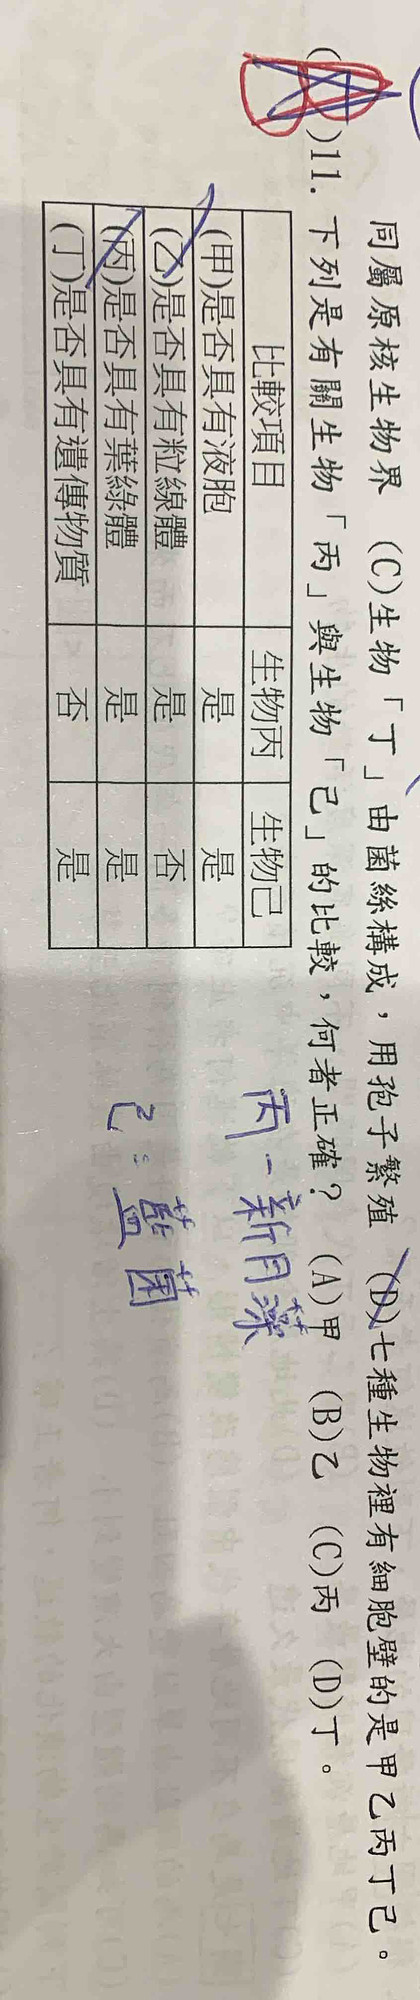 同屬原核生物界　(C)生物「丁」由菌絲構成，用孢子繁殖　(D)七種生物裡有細胞壁的是甲乙丙丁己。
(　)11. 下列是有關生物「丙」與生物「己」的比較，何者正確？　(A)甲　(B)乙　(C)丙　(D)丁。
比較項目　生物丙　生物己
(甲)是否具有液胞　是　是
(乙)是否具有粒線體　是　否
(丙)是否具有葉綠體　是　是
(丁)是否具有遺傳物質　否　是
丙－新月藻
己：藍菌